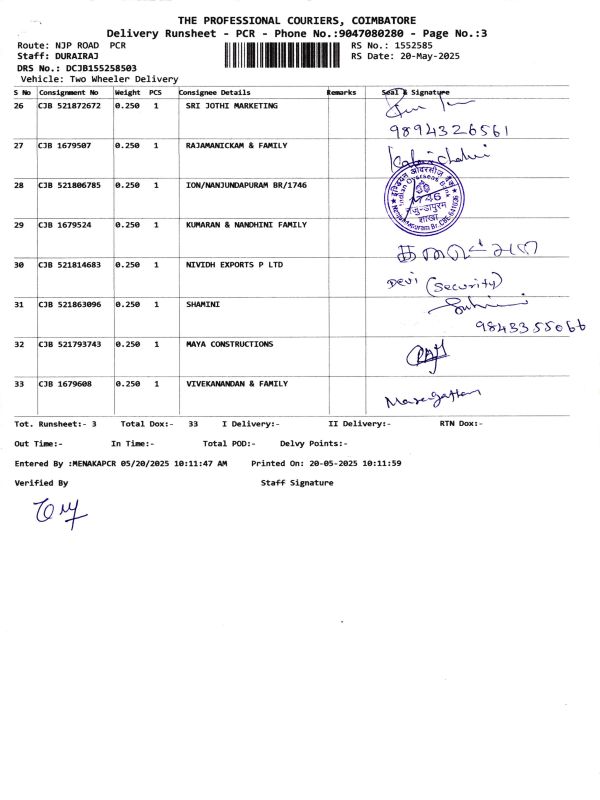 THE PROFESSIONAL COURIERS, COIMBATORE
Delivery Runsheet - PCR - Phone No.:9047080280 - Page No.:3
Route: NJP ROAD PCR RS No.: 1552585
Staff: DURAIRAJ RS Date: 20-May-2025
DRS No.: DCJB155258503
Vehicle: Two Wheeler Delivery
S No Consignment No Weight PCS Consignee Details Remarks Seal & Signature
26 CJB 521872672 0.250 1 SRI JOTHI MARKETING
9894326561
27 CJB 1679507 0.250 1 RAJAMANICKAM & FAMILY
28 CJB 521806785 0.250 1 ION/NANJUNDAPURAM BR/1746
1746
शाखा
29 CJB 1679524 0.250 1 KUMARAN & NANDHINI FAMILY
30 CJB 521814683 0.250 1 NIVIDH EXPORTS P LTD
Devi (Security)
31 CJB 521863096 0.250 1 SHAMINI
9843355066
32 CJB 521793743 0.250 1 MAYA CONSTRUCTIONS
33 CJB 1679608 0.250 1 VIVEKANANDAN & FAMILY
Tot. Runsheet:- 3 Total Dox:- 33 I Delivery:- II Delivery:- RTN Dox:-
Out Time:- In Time:- Total POD:- Delvy Points:-
Entered By :MENAKAPCR 05/20/2025 10:11:47 AM Printed On: 20-05-2025 10:11:59
Verified By Staff Signature